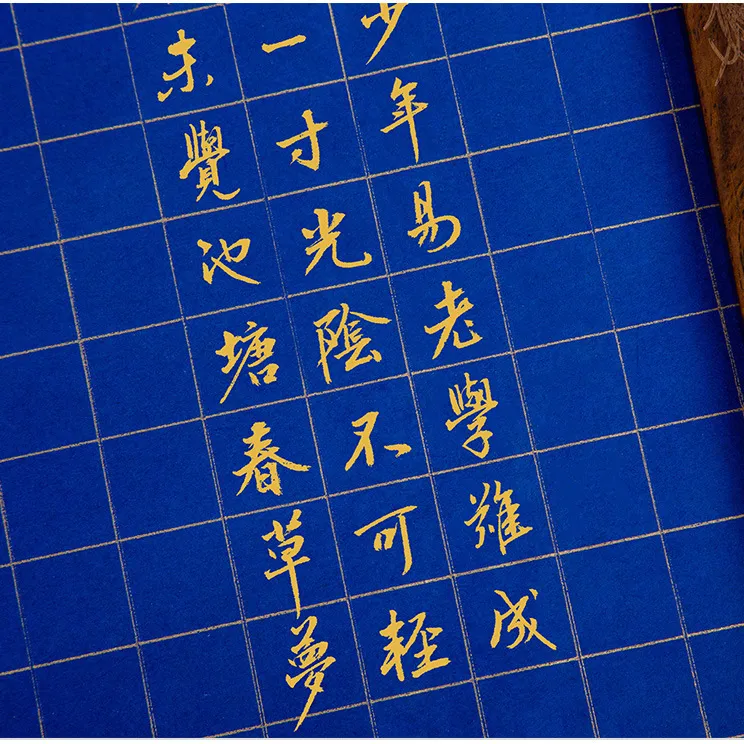 少年易老學難成
一寸光陰不可輕
未覺池塘春草夢